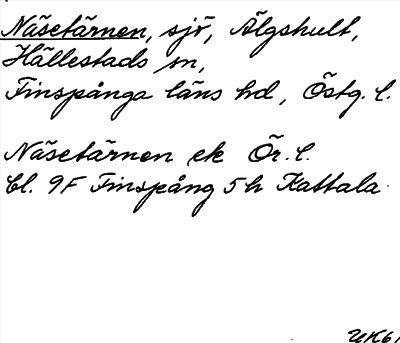 Näsetärnen, sjö, Älgshult,
Hällestads sn,
Finspånga läns hd, Östg. l.
Näsetärnen ek Ör. l.
bl. 9F Finspång 5h Kattala
UK61